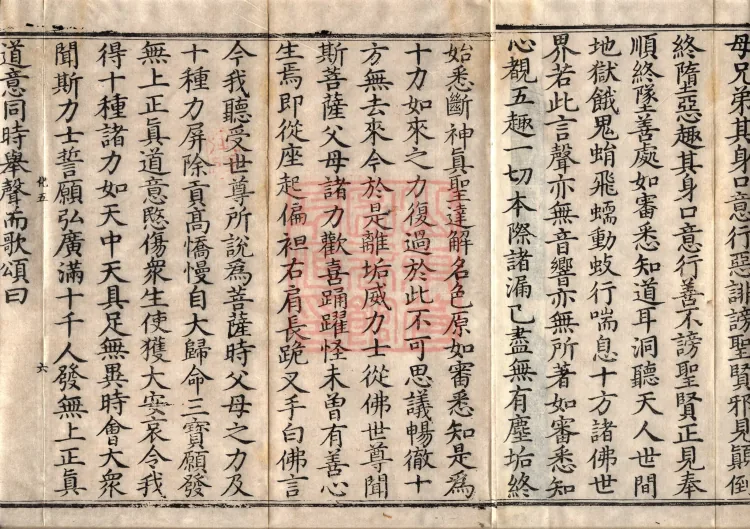 母兄弟其身口意行惡誹謗聖賢邪見顛倒
終墮惡趣其身口意行善不謗聖賢正見奉
順終墜善處如審悉知道耳洞聽天人世間
地獄餓鬼蛸飛蠕動蚑行喘息十方諸佛世
界若此言聲亦無音響亦無所著如審悉知
心覩五趣一切本際諸漏已盡無有塵垢終
始悉斷神眞聖達解名色原如審悉知是爲
十力如來之力復過於此不可思議暢徹十
方無去來今於是離垢威力士從佛世尊聞
斯菩薩父母諸力歡喜踊躍怪未曽有善心
生焉即從座起偏袒右肩長跪叉手白佛言
今我聽受世尊所說爲菩薩時父母之力及
十種力屏除貢高憍慢自大歸命三寶願發
無上正眞道意愍傷衆生使獲大安哀令我
得十種諸力如天中天具足無異時會大衆
聞斯力士誓願弘廣滿十千人發無上正眞
六
道意同時舉聲而歌頌曰